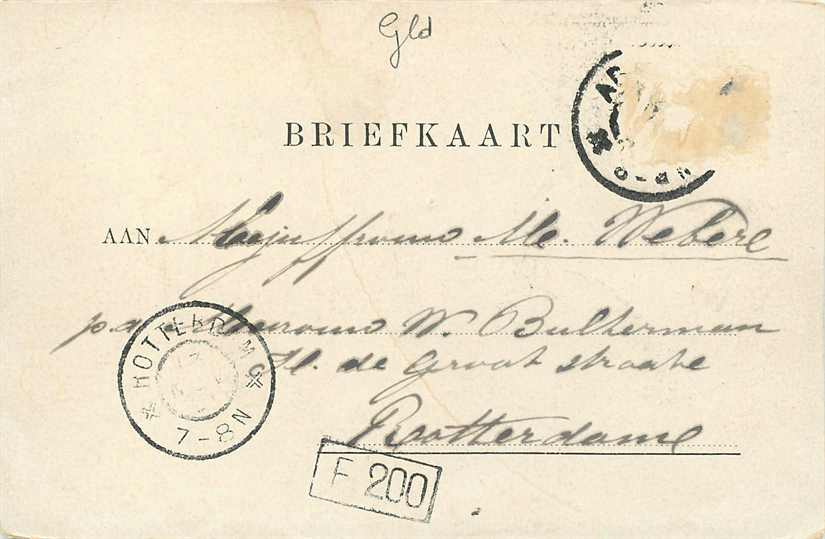 Gld
BRIEFKAART
AAN Mejuffrouw M. Webere
p.a. Mevrouw W. Bulterman
H. de Groot straat
Rotterdam
ROTTERDAM
7-8N
F 200